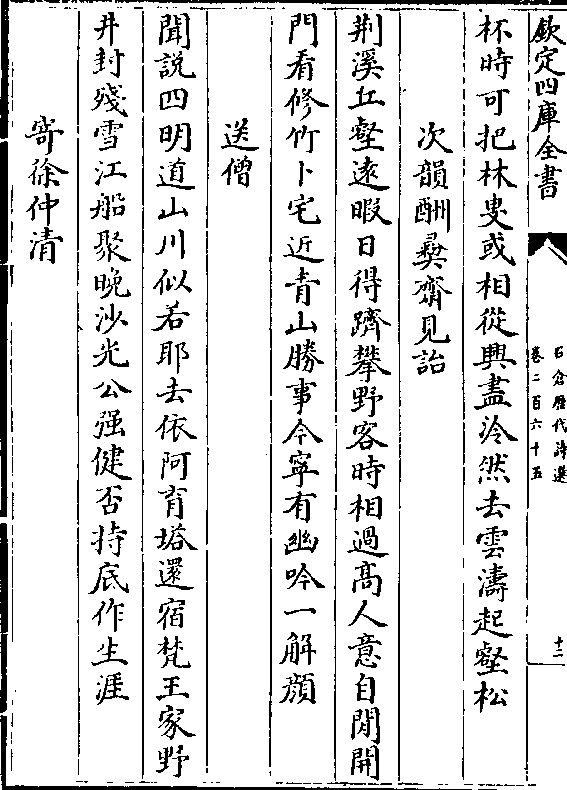 欽定四庫全書
石倉歷代詩選
卷二百六十五
十二
杯時可把林叟或相從興盡泠然去雲濤起壑松
次韻酬彞齋見詒
荆溪丘壑遠暇日得躋攀野客時相過高人意自閒開
門看修竹卜宅近青山勝事今寧有幽吟一解顔
送僧
聞説四明道山川似若耶去依阿育塔還宿梵王家野
井封殘雪江船聚晚沙光公强健否持底作生涯
寄徐仲清